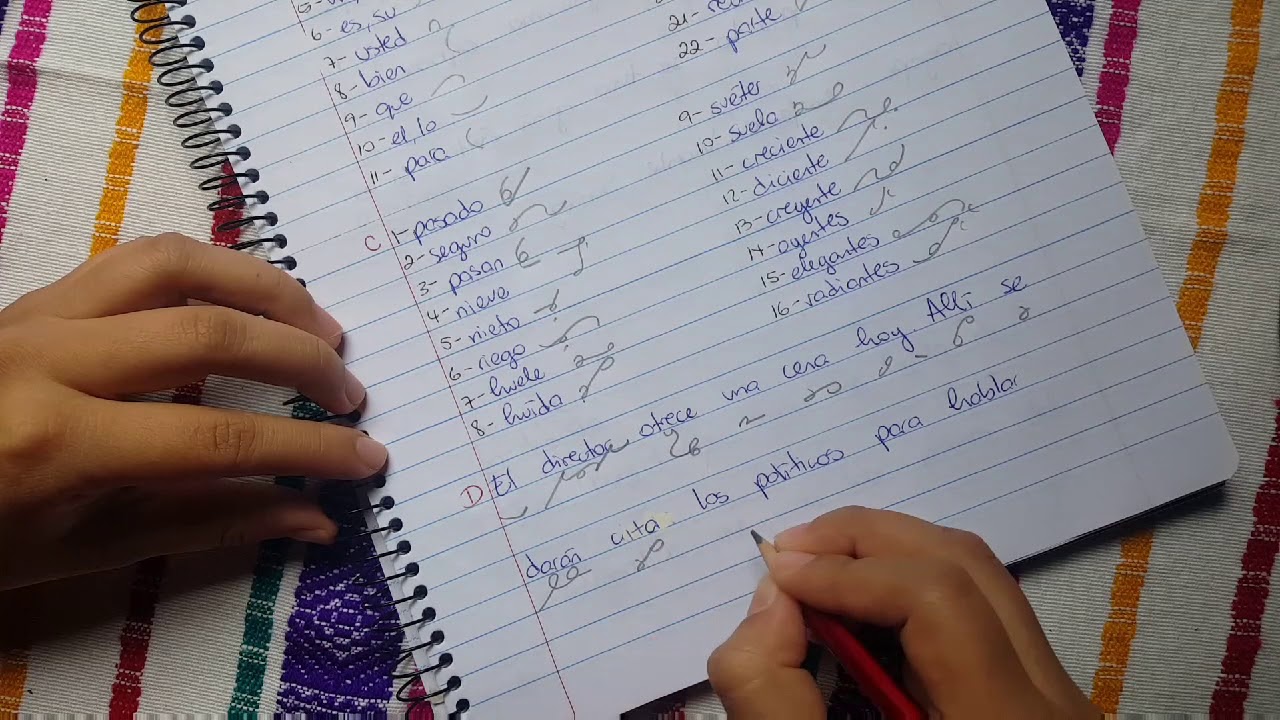 6- es, su
7- usted
8- bien
9- que
10- el, lo
11- para
22- parte
C 1- pasado
2- seguro
3- pasan
4- nieve
5- nieto
6- riego
7- huele
8- huida
9- suéter
10- suela
11- creciente
12- diciente
13- creyente
14- oyentes
15- elegantes
16- radiantes
D El director ofrece una cena hoy. Allí se
darán cita los políticos para hablar